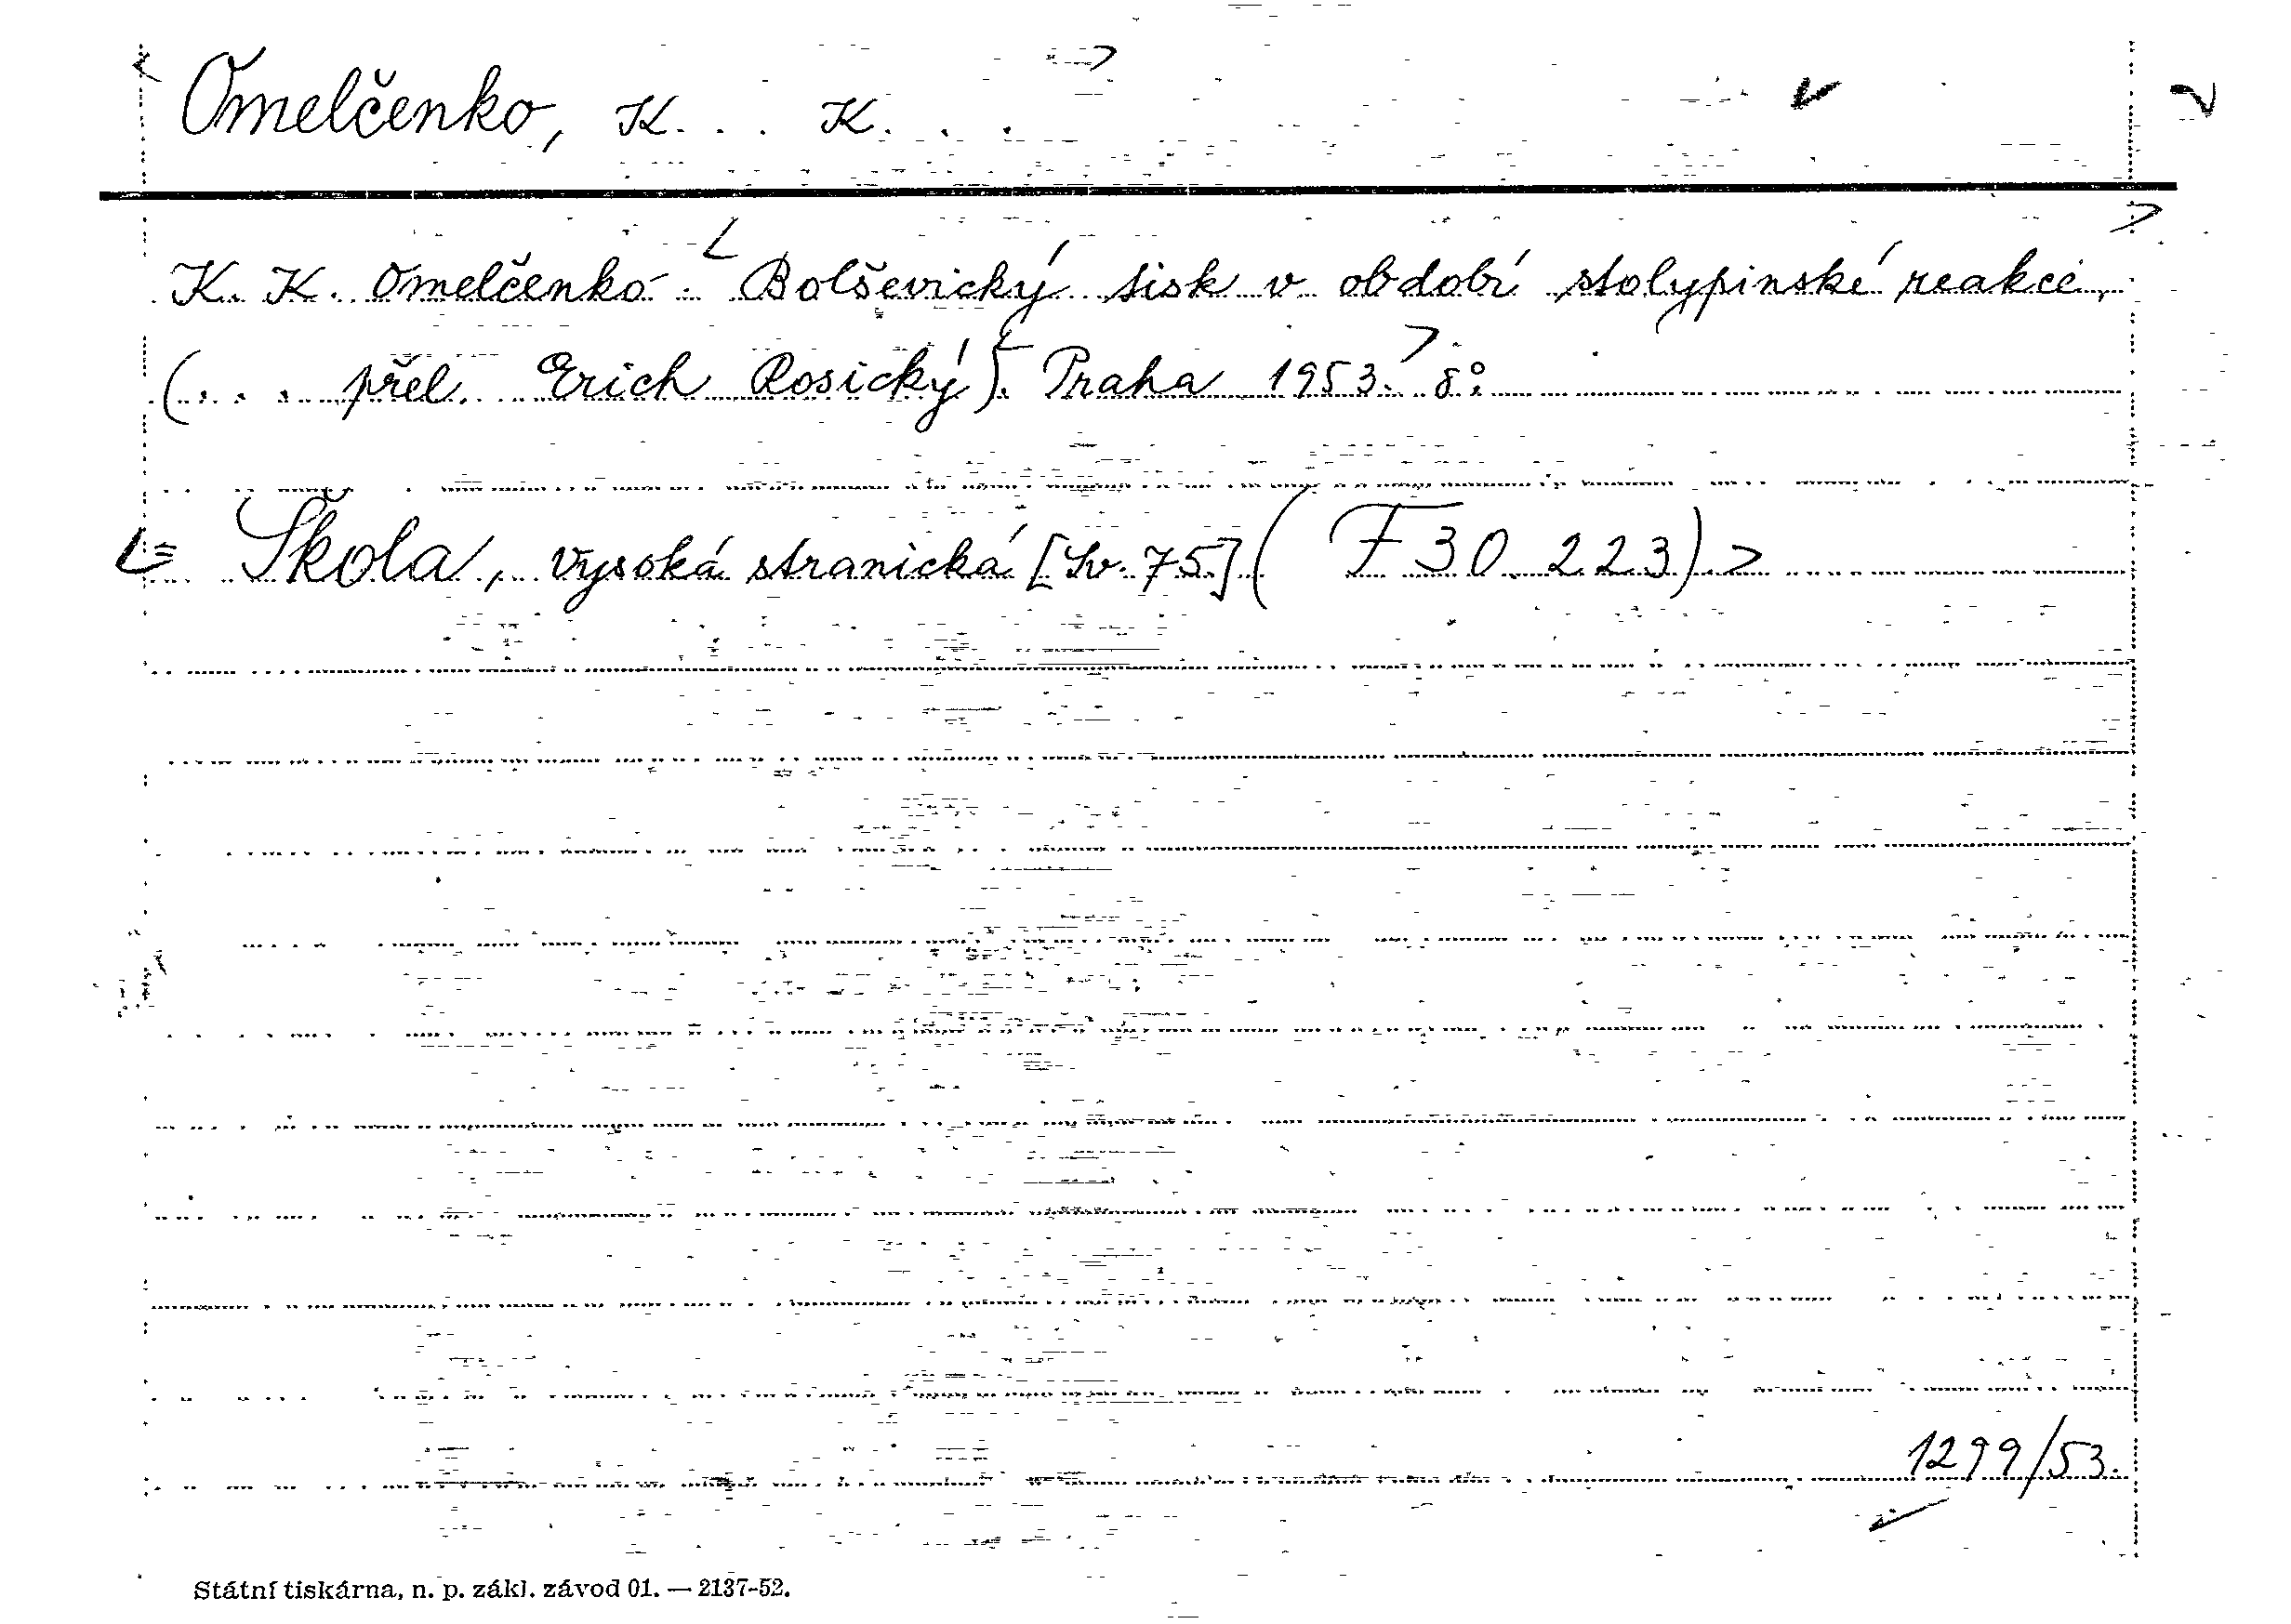 Omelčenko, K. . . K. . . .
K. K. Omelčenko: Bolševický tisk v období stolypinské reakce,
(. . . přel. Erich Rosický). Praha 1953. 8°.
= Škola, vysoká stranická [Sv. 75] ( F 30 223).
1299/53.
Státní tiskárna, n. p. zákl. závod 01. — 2137-52.